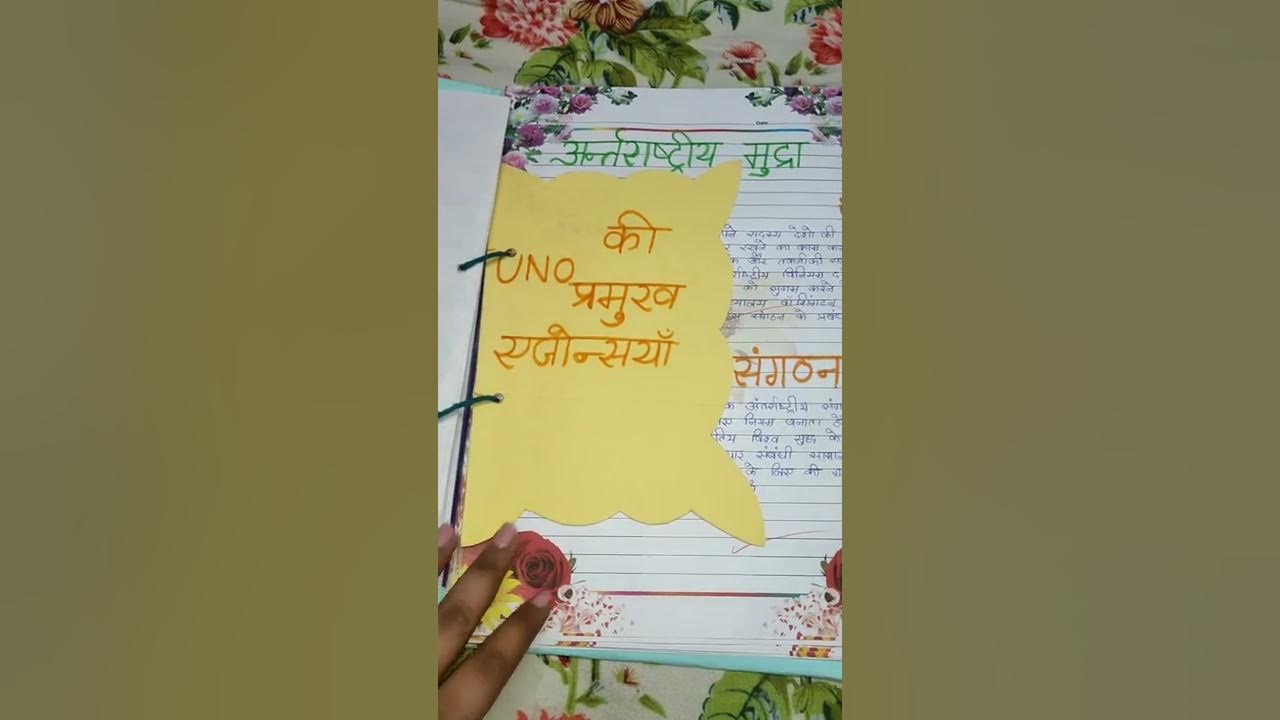 Date
अर्न्तराष्ट्रीय मुद्रा
की
UNO
प्रमुख
एजेन्सियाँ
सदस्य देशो की
रखने का काम कर
और तकनीकी
विनिमय
को सुगम करने
वॉशिंगटन
संगठन के प्रबंध
संगठन
अंतर्राष्ट्रीय
नियम बनाता है
विश्व युद्ध के
संबंधी
के लिए की